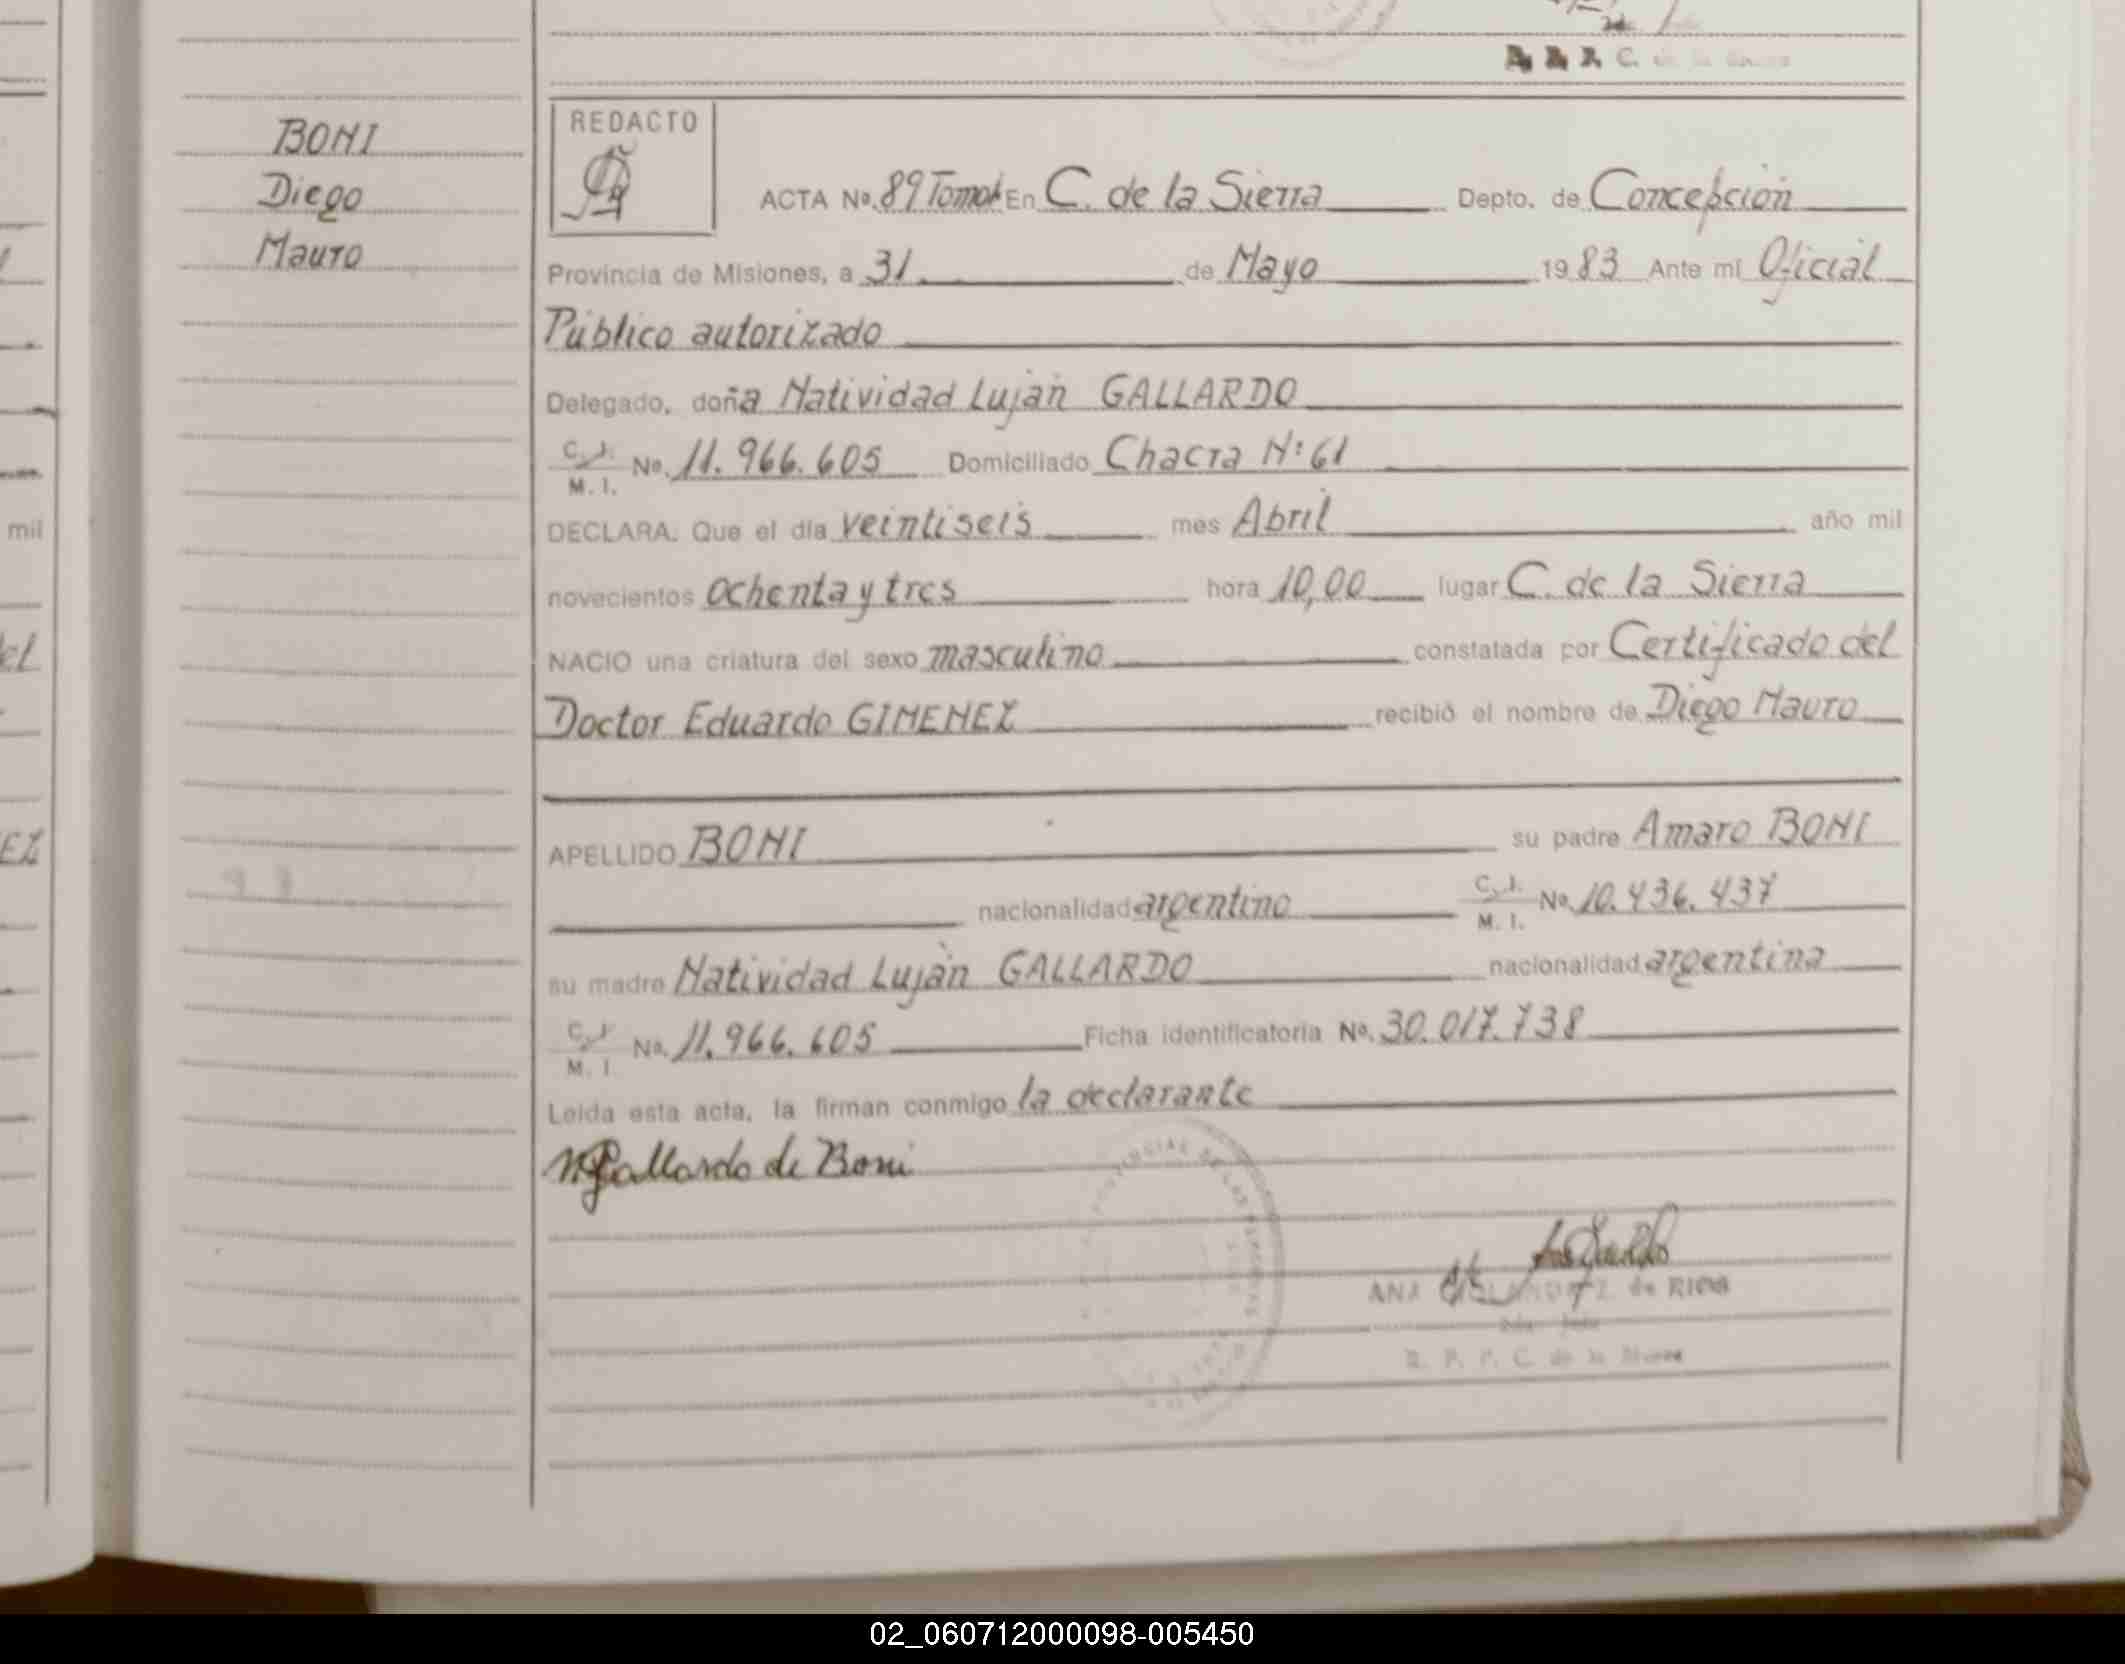 C. de la Sierra
BONI
Diego
Mauro
REDACTO
ACTA No. 89 Tomo En C. de la Sierra Depto. de Concepción
Provincia de Misiones, a 31 de Mayo 1983 Ante mí Oficial
Público autorizado
Delegado, doña Natividad Luján GALLARDO
C. I.
M. I. No. 11.966.605 Domiciliado Chacra N: 61
DECLARA: Que el día veintiseis mes Abril año mil
novecientos ochenta y tres hora 10,00 lugar C. de la Sierra
NACIO una criatura del sexo masculino constatada por Certificado del
Doctor Eduardo GIMENEZ recibió el nombre de Diego Mauro
APELLIDO BONI su padre Amaro BONI
nacionalidad argentino C. I.
M. I. No. 10.436.437
su madre Natividad Luján GALLARDO nacionalidad argentina
C. I.
M. I. No. 11.966.605 Ficha identificatoria No. 30.017.738
Leída esta acta, la firman conmigo la declarante
N Gallardo de Boni
ANA de RIOS
R. P. P. C. de la Sierra
mil
el
EZ
02_060712000098-005450